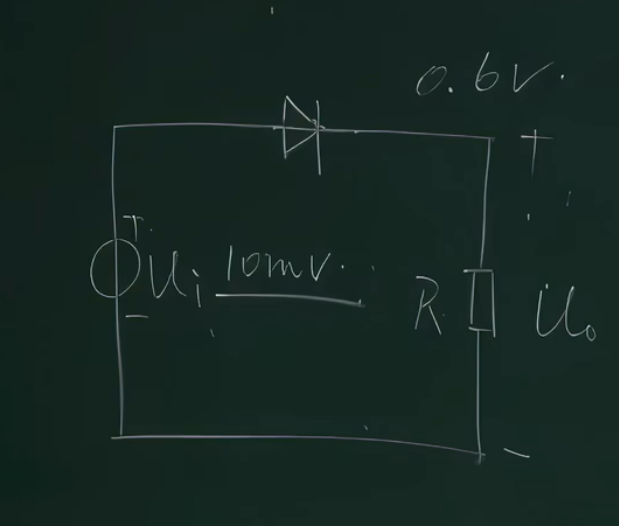 0.6V.
+
+
Ui 10mV.
R Uo
-
-